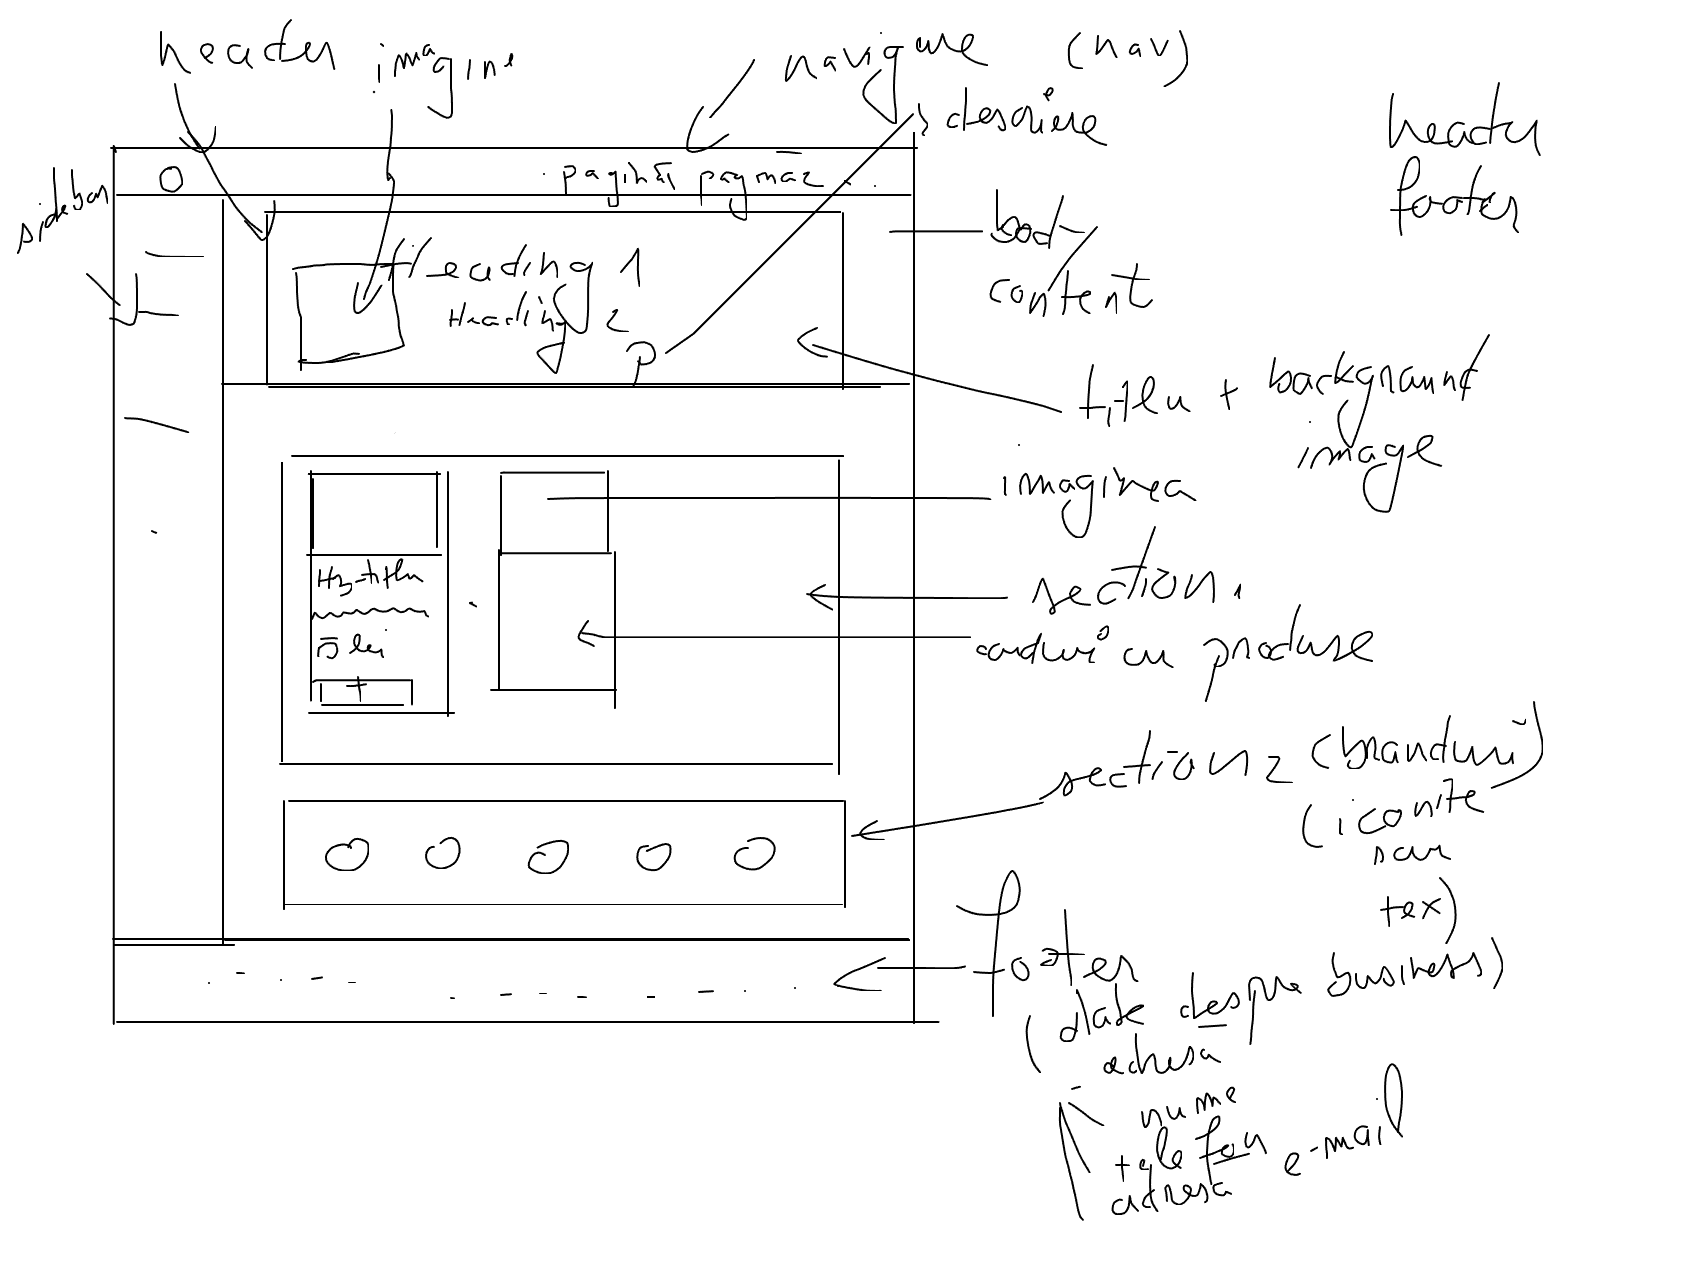 header imagine
navigare (nav)
descriere
header
footer
sidebar
pagina1 pagina2
body
content
Heading 1
Heading 2
p
titlu + background
image
imaginea
H3-titlu
5 lei
+
section 1
carduri cu produse
section 2 (branduri)
(iconite
sau
tex)
footer
(date despre business)
adresa
nume
telefon e-mail
adresa